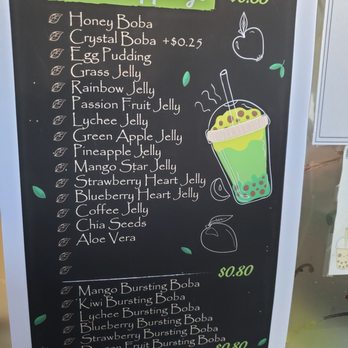 Honey Boba
Crystal Boba +$0.25
Egg Pudding
Grass Jelly
Rainbow Jelly
Passion Fruit Jelly
Lychee Jelly
Green Apple Jelly
Pineapple Jelly
Mango Star Jelly
Strawberry Heart Jelly
Blueberry Heart Jelly
Coffee Jelly
Chia Seeds
Aloe Vera
$0.80
Mango Bursting Boba
Kiwi Bursting Boba
Lychee Bursting Boba
Blueberry Bursting Boba
Strawberry Bursting Boba
Fruit Bursting Boba
$0.80